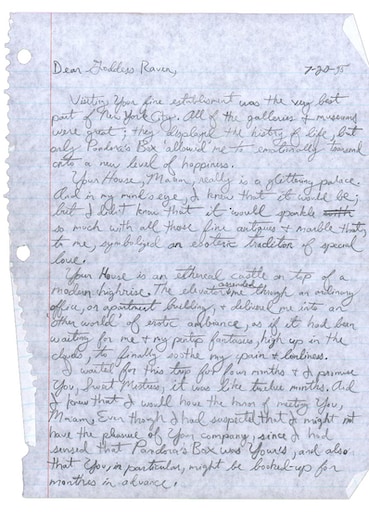 Dear Goddess Raven, 7-20-95
Visiting Your fine establisment was the very best
part of New York City. All of the galleries & museums
were great; they displayed the history of life, but
only Pandora's Box allowed me to emotionally transend
onto a new level of happiness.
Your House, Ma'am, really is a glittering palace.
And in my mind's eye, I knew that it would be;
but I didn't know that it would sparkle
so much with all those fine antiques & marble that,
to me, symbolized an esoteric tradition of special
love.
Your House is an ethereal castle on top of a
modern highrise. The elevator ascended me through an ordinary
office, or apartment building, & deliver me into an
'other world' of erotic ambiance, as if it had been
waiting for me & my pentup fantasies, high up in the
clouds, to finally soothe my pain & lonliness.
I waited for this trip for four months & I promise
You, Sweet Mistress, it was like twelve months. And
I knew that I would have the honor of meeting You,
Ma'am, Even though I had suspected that I might not
have the pleasure of Your company, since I had
sensed that Pandora's Box was Your's, and also
that You, in particular, might be booked-up for
months in advance.